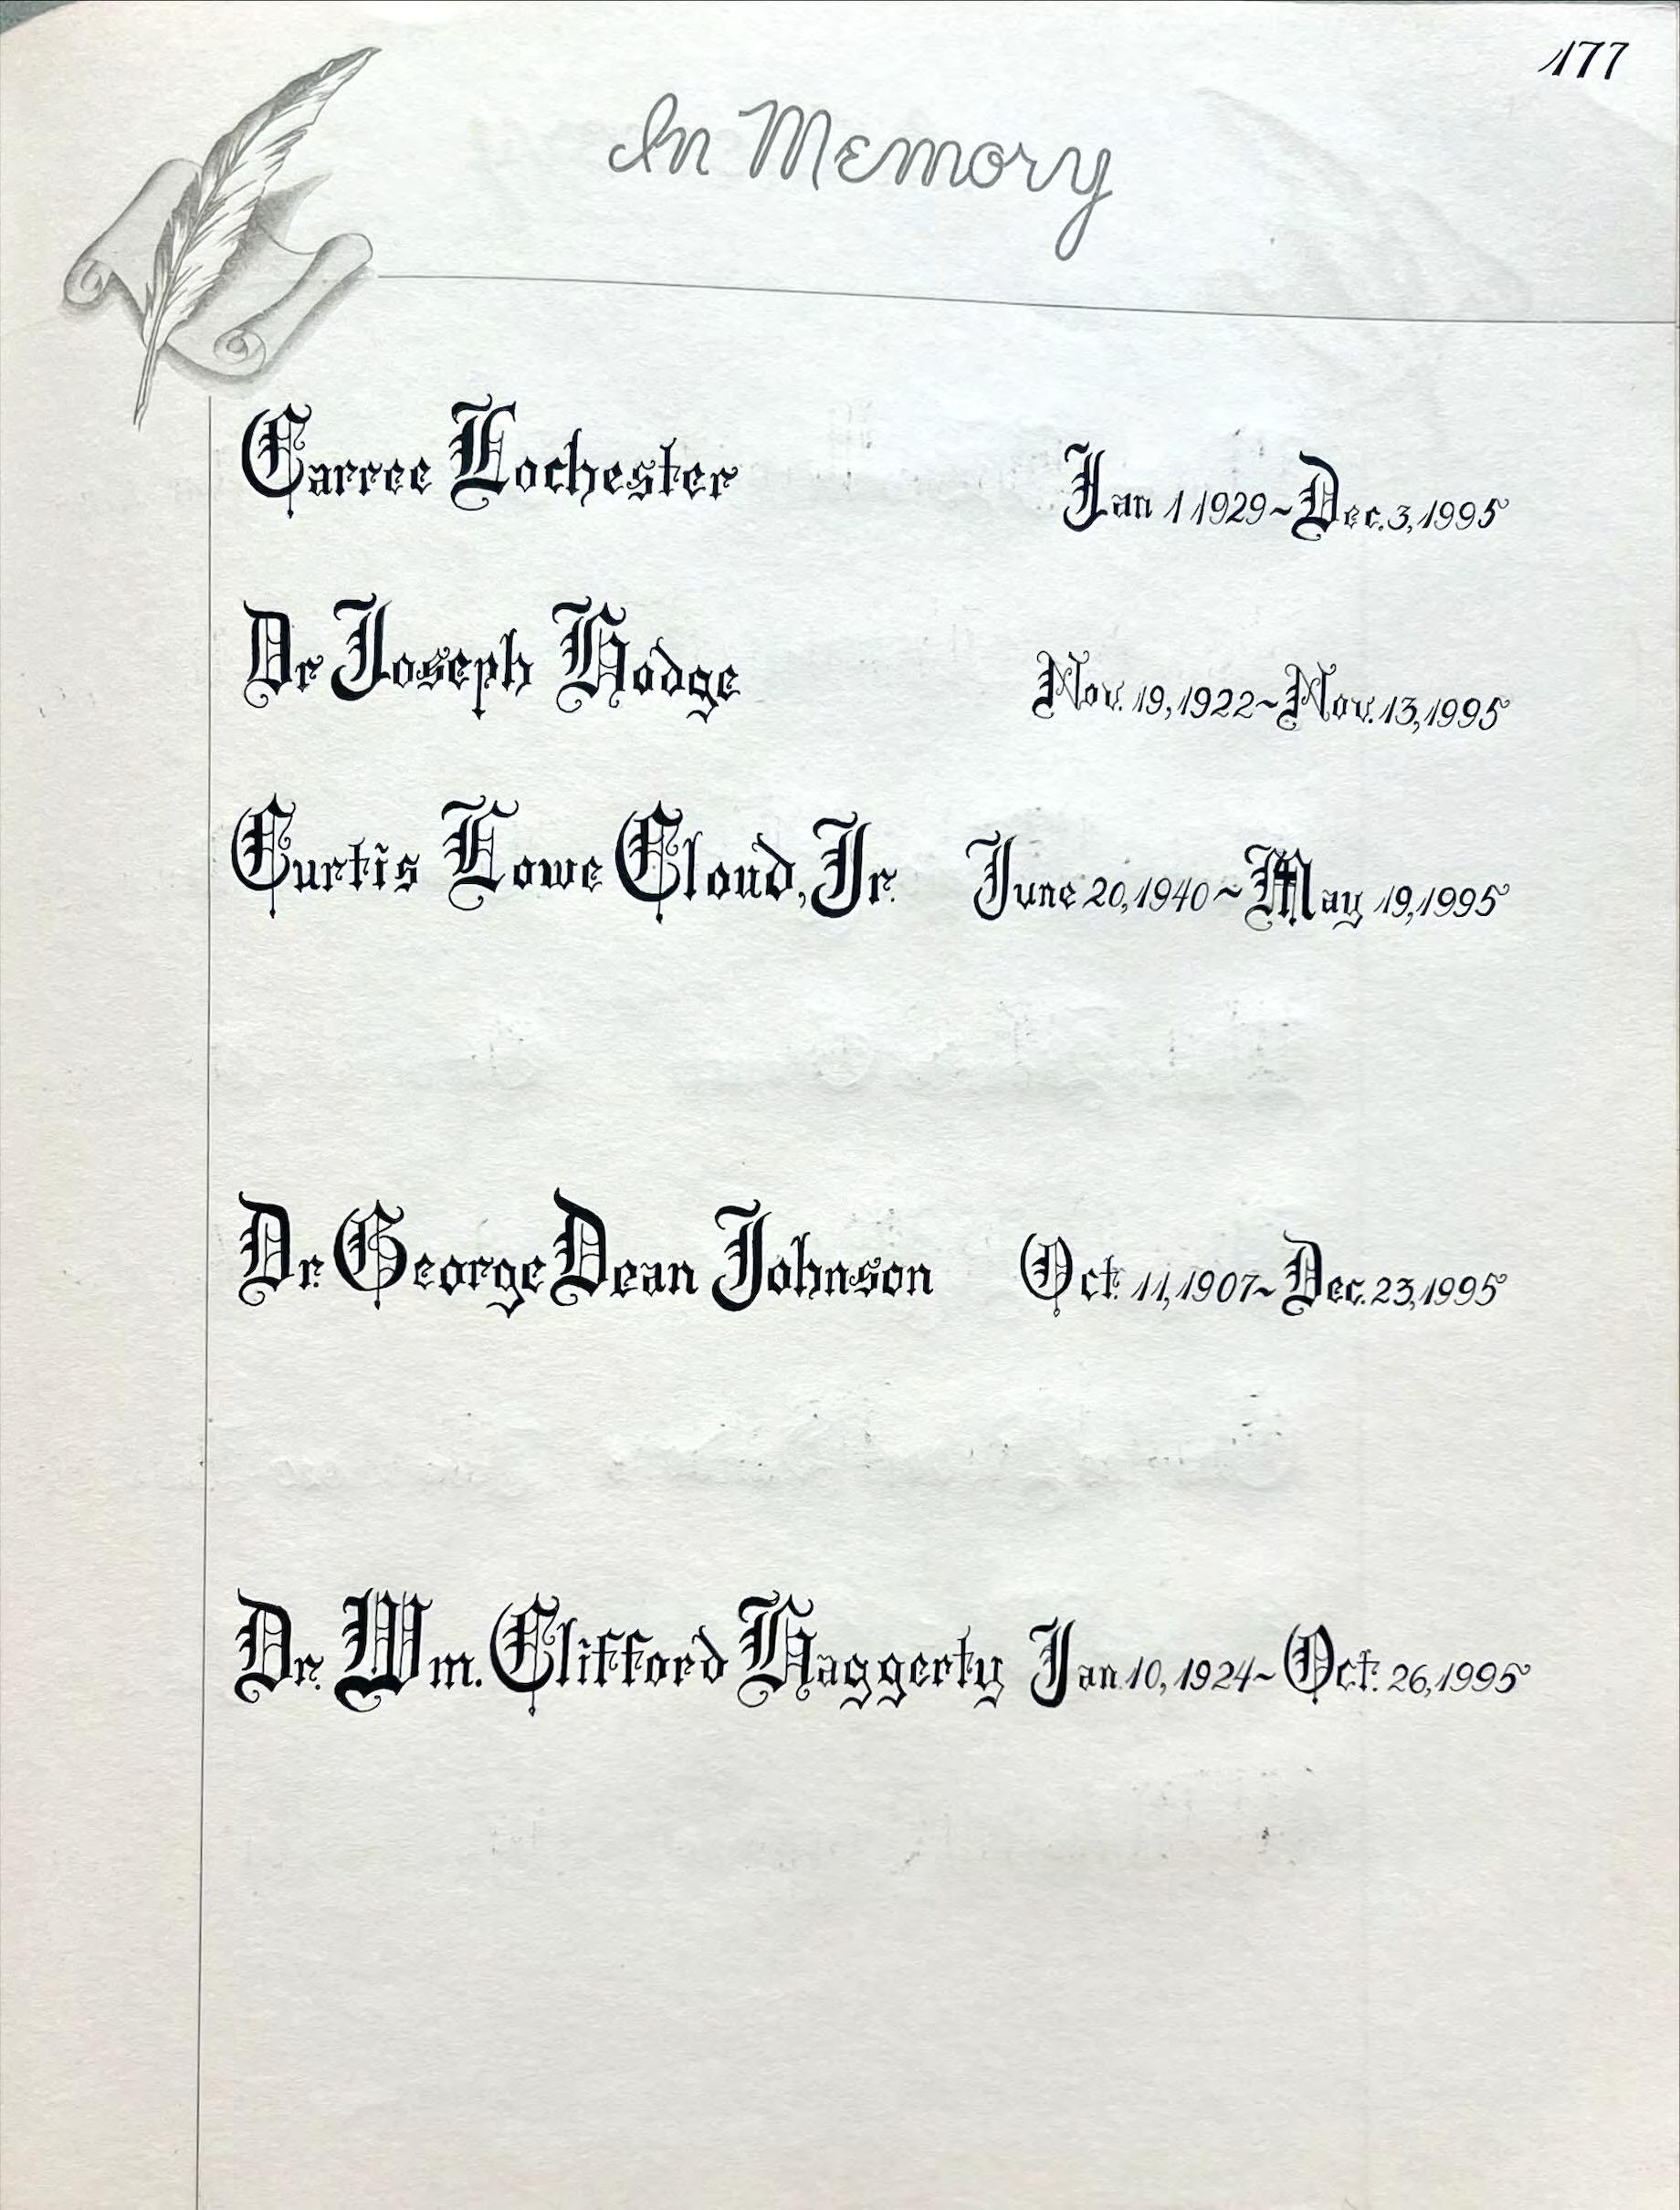 177
In Memory
Carree Lochester Jan 1 1929~Dec. 3, 1995
Dr Joseph Hodge Nov. 19, 1922~Nov. 13, 1995
Curtis Lowe Cloud, Jr. June 20, 1940~May 19, 1995
Dr. George Dean Johnson Oct. 11, 1907~Dec. 23, 1995
Dr. Wm. Clifford Haggerty Jan 10, 1924~Oct. 26, 1995